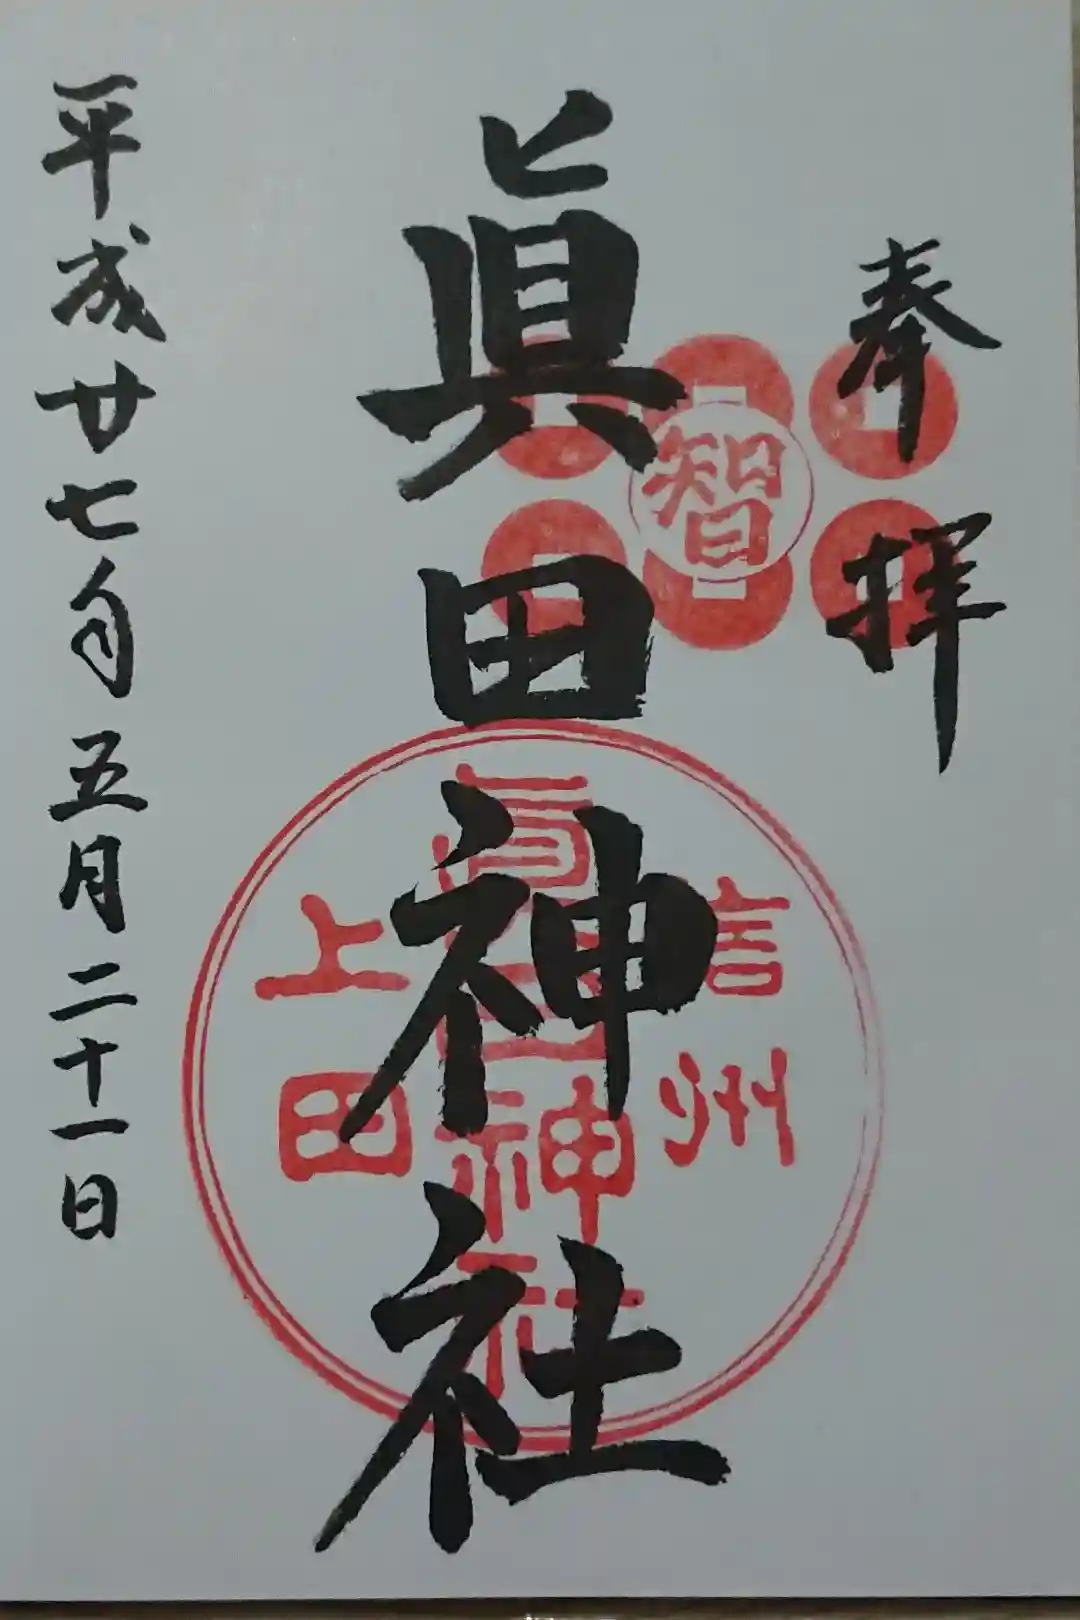 奉拝
智
眞田神社
信州
真田神社
上田
平成廿七年五月二十一日